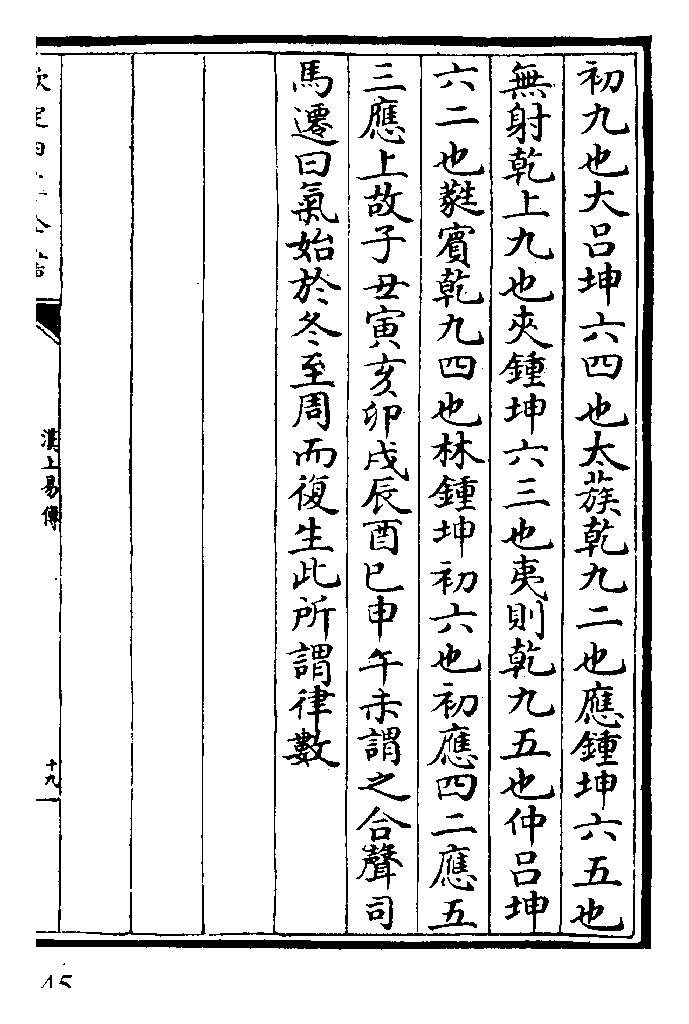 初九也大吕坤六四也太蔟乾九二也應鍾坤六五也
無射乾上九也夾鍾坤六三也夷則乾九五也仲吕坤
六二也蕤賓乾九四也林鍾坤初六也初應四二應五
三應上故子丑寅亥卯戌辰酉巳申午未謂之合聲司
馬遷曰氣始於冬至周而復生此所謂律數
漢上易傳
十九